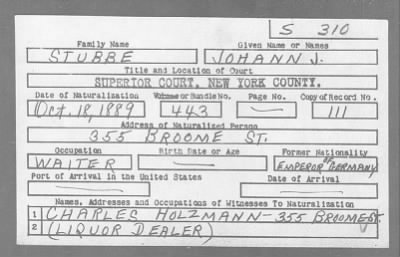 S 310
Family Name Given Name or Names
STUBBE JOHANN J.
Title and Location of Court
SUPERIOR COURT, NEW YORK COUNTY.
Date of Naturalization Volume or Bundle No. Page No. Copy of Record No.
Oct. 18, 1889 443 — 111
Address of Naturalized Person
355 BROOME ST.
Occupation Birth Date or Age Former Nationality
WAITER — EMPEROR OF GERMANY
Port of Arrival in the United States Date of Arrival
— —
Names, Addresses and Occupations of Witnesses To Naturalization
1 CHARLES HOLZMANN - 355 BROOME ST.
2 (LIQUOR DEALER)